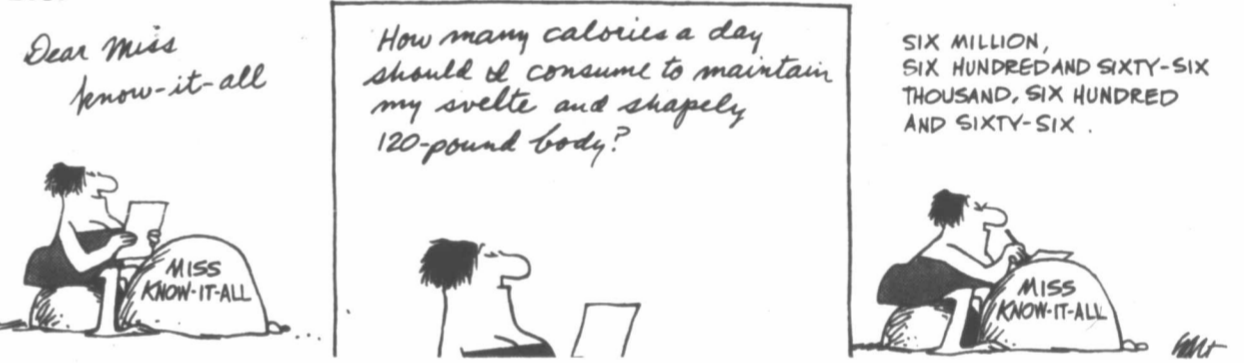 Dear Miss
know-it-all
MISS
KNOW-IT-ALL
How many calories a day
should I consume to maintain
my svelte and shapely
120-pound body?
SIX MILLION,
SIX HUNDRED AND SIXTY-SIX
THOUSAND, SIX HUNDRED
AND SIXTY-SIX.
MISS
KNOW-IT-ALL